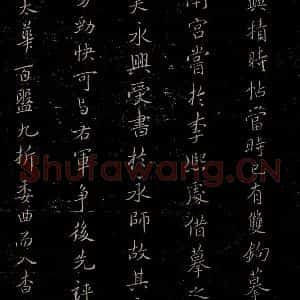 興積時帖當時已有雙鉤摹
南宮嘗於李熙處借摹之
吳永興受書於永師故其
勁快可与右軍争後先評
太華百盤九折委曲而入杳
Shufawang.CN